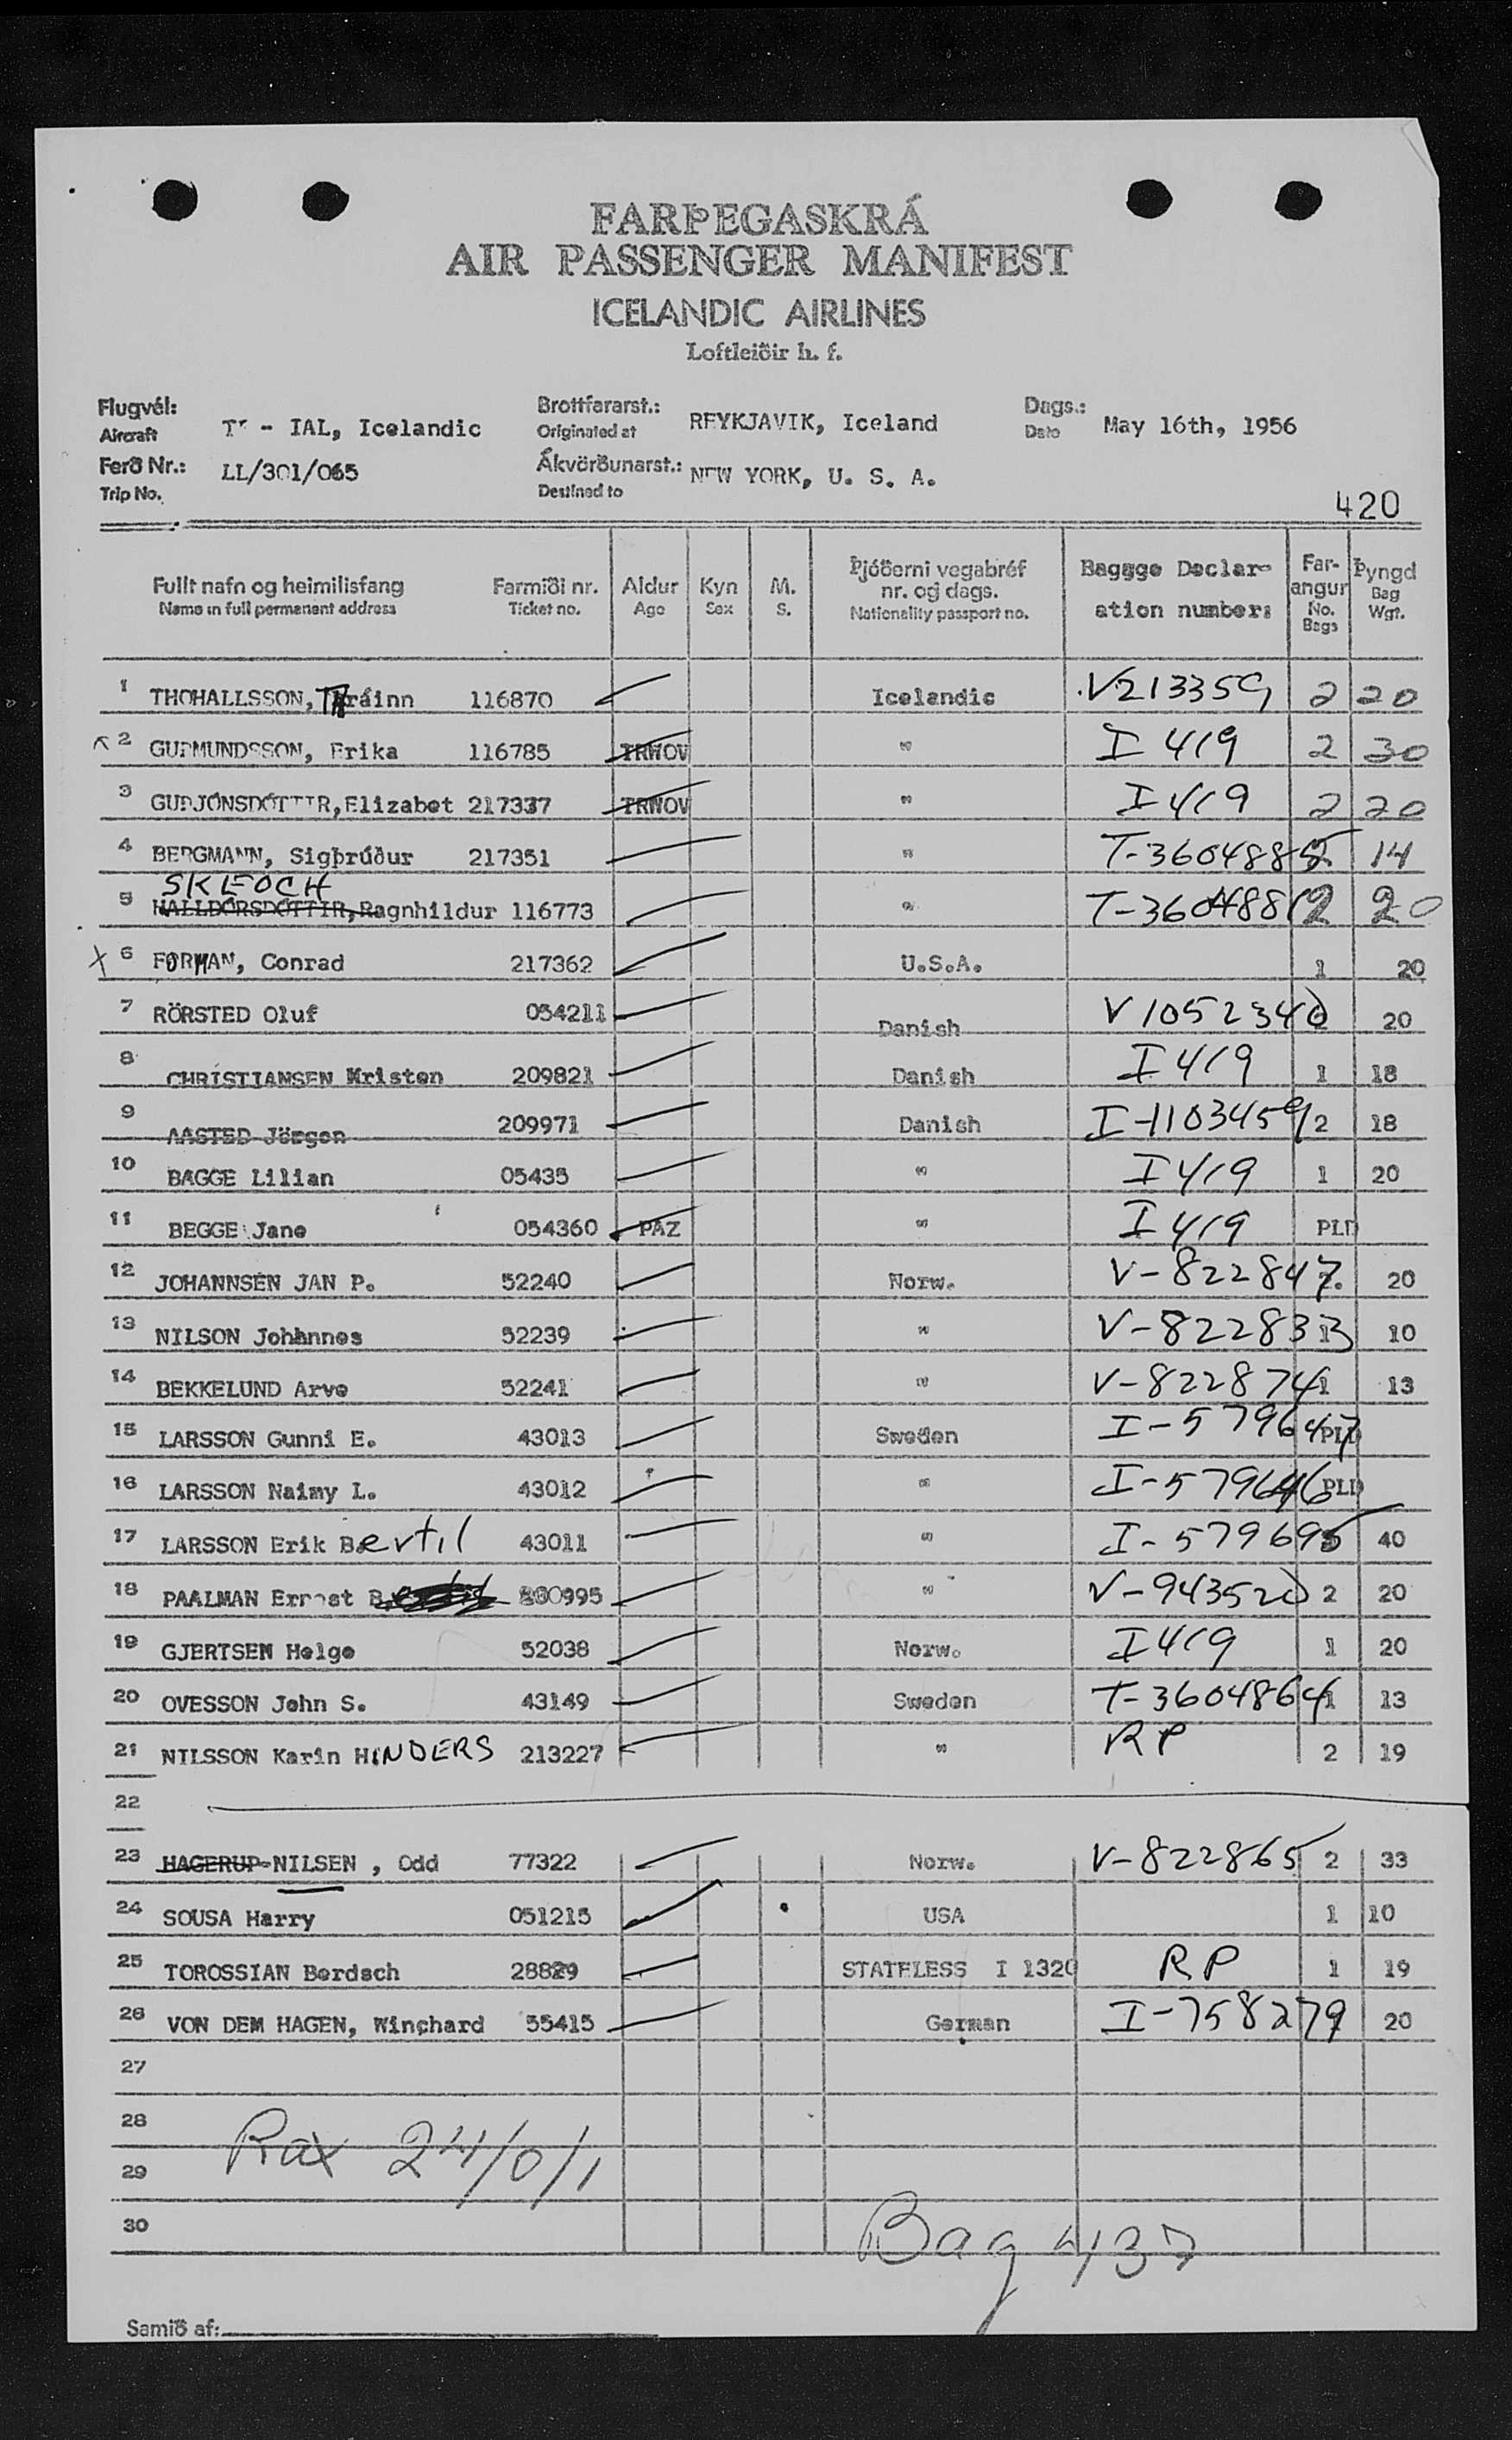 FARÞEGASKRÁ
AIR PASSENGER MANIFEST
ICELANDIC AIRLINES
Loftleiðir h. f.
Flugvél: Brottfararst.: Dags.:
Aircraft - IAL, Icelandic Originated at REYKJAVIK, Iceland Date May 16th, 1956
Ferð Nr.: LL/301/065 Ákvörðunarst.: NEW YORK, U. S. A.
Trip No. Destined to
420
Fullt nafn og heimilisfang Farmiði nr. Aldur Kyn M. Þjóðerni vegabréf nr. og dags. Baggge Declar- Far- angur Þyngd
Name in full permanent address Ticket no. Age Sex S. Nationality passport no. ation number: No. Bags Bag Wgt.
1 THOHALLSSON, Thráinn 116870 Icelandic V213359 2 20
2 GUÐMUNDSSON, Erika 116785 TRWOV " I 419 2 30
3 GUÐJÓNSDÓTTIR, Elizabet 217337 TRWOV " I 419 2 20
4 BERGMANN, Sigþrúður 217351 " T-3604885 14
SKEOCH
5 HALLDÓRSDÓTTIR, Ragnhildur 116773 " T-3604881 2 20
6 FORMAN, Conrad 217362 U.S.A. 1 20
7 RÖRSTED Oluf 054211 Danish V 1052340 20
8 CHRISTIANSEN Kristen 209821 Danish I 419 1 18
9 AASTED Jörgen 209971 Danish I-1103459 2 18
10 BAGGE Lilian 05435 " I 419 1 20
11 BEGGE Jane 054360 PAZ " I 419 PLD
12 JOHANNSEN JAN P. 52240 Norw. V-822847 20
13 NILSON Johannes 52239 " V-822833 10
14 BEKKELUND Arve 52241 " V-822874 1 13
15 LARSSON Gunni E. 43013 Sweden I-579647 PLD
16 LARSSON Naimy L. 43012 " I-579646 PLD
17 LARSSON Erik Bertil 43011 " I-579695 40
18 PAALMAN Ernest B. 800995 " V-943520 2 20
19 GJERTSEN Helge 52038 Norw. I 419 1 20
20 OVESSON John S. 43149 Sweden T-3604864 1 13
21 NILSSON Karin HINDERS 213227 " RP 2 19
22
23 HAGERUP-NILSEN , Odd 77322 Norw. V-822865 2 33
24 SOUSA Harry 051215 USA 1 10
25 TOROSSIAN Berdsch 28829 STATELESS I 1320 RP 1 19
26 VON DEM HAGEN, Winchard 55415 German I-758279 20
27
28
Pax 24/0/1
29
30
Bag 437
Samið af: